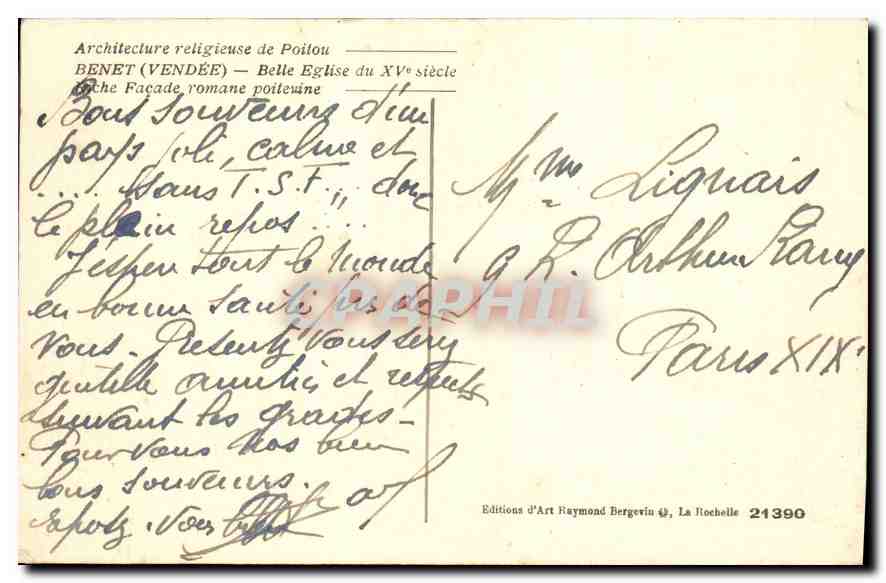 Architecture religieuse de Poitou
BENET (VENDÉE) — Belle Eglise du XVe siècle
riche Façade romane poitevine
Bons souvenirs d'un
pays joli, calme et
.... sans T.S.F., donc
le plein repos ....
J'espère tout le monde
en bonne santé près de
vous. Présentez vous serez
gentille amitiés et respects
suivant les grades -
Pour vous nos bien
bons souvenirs.
reposez-vous bien
Mme Lignais
9 R. Arthur Ranc
Paris XIXe
CPAPHIL
Editions d'Art Raymond Bergevin, La Rochelle 21390